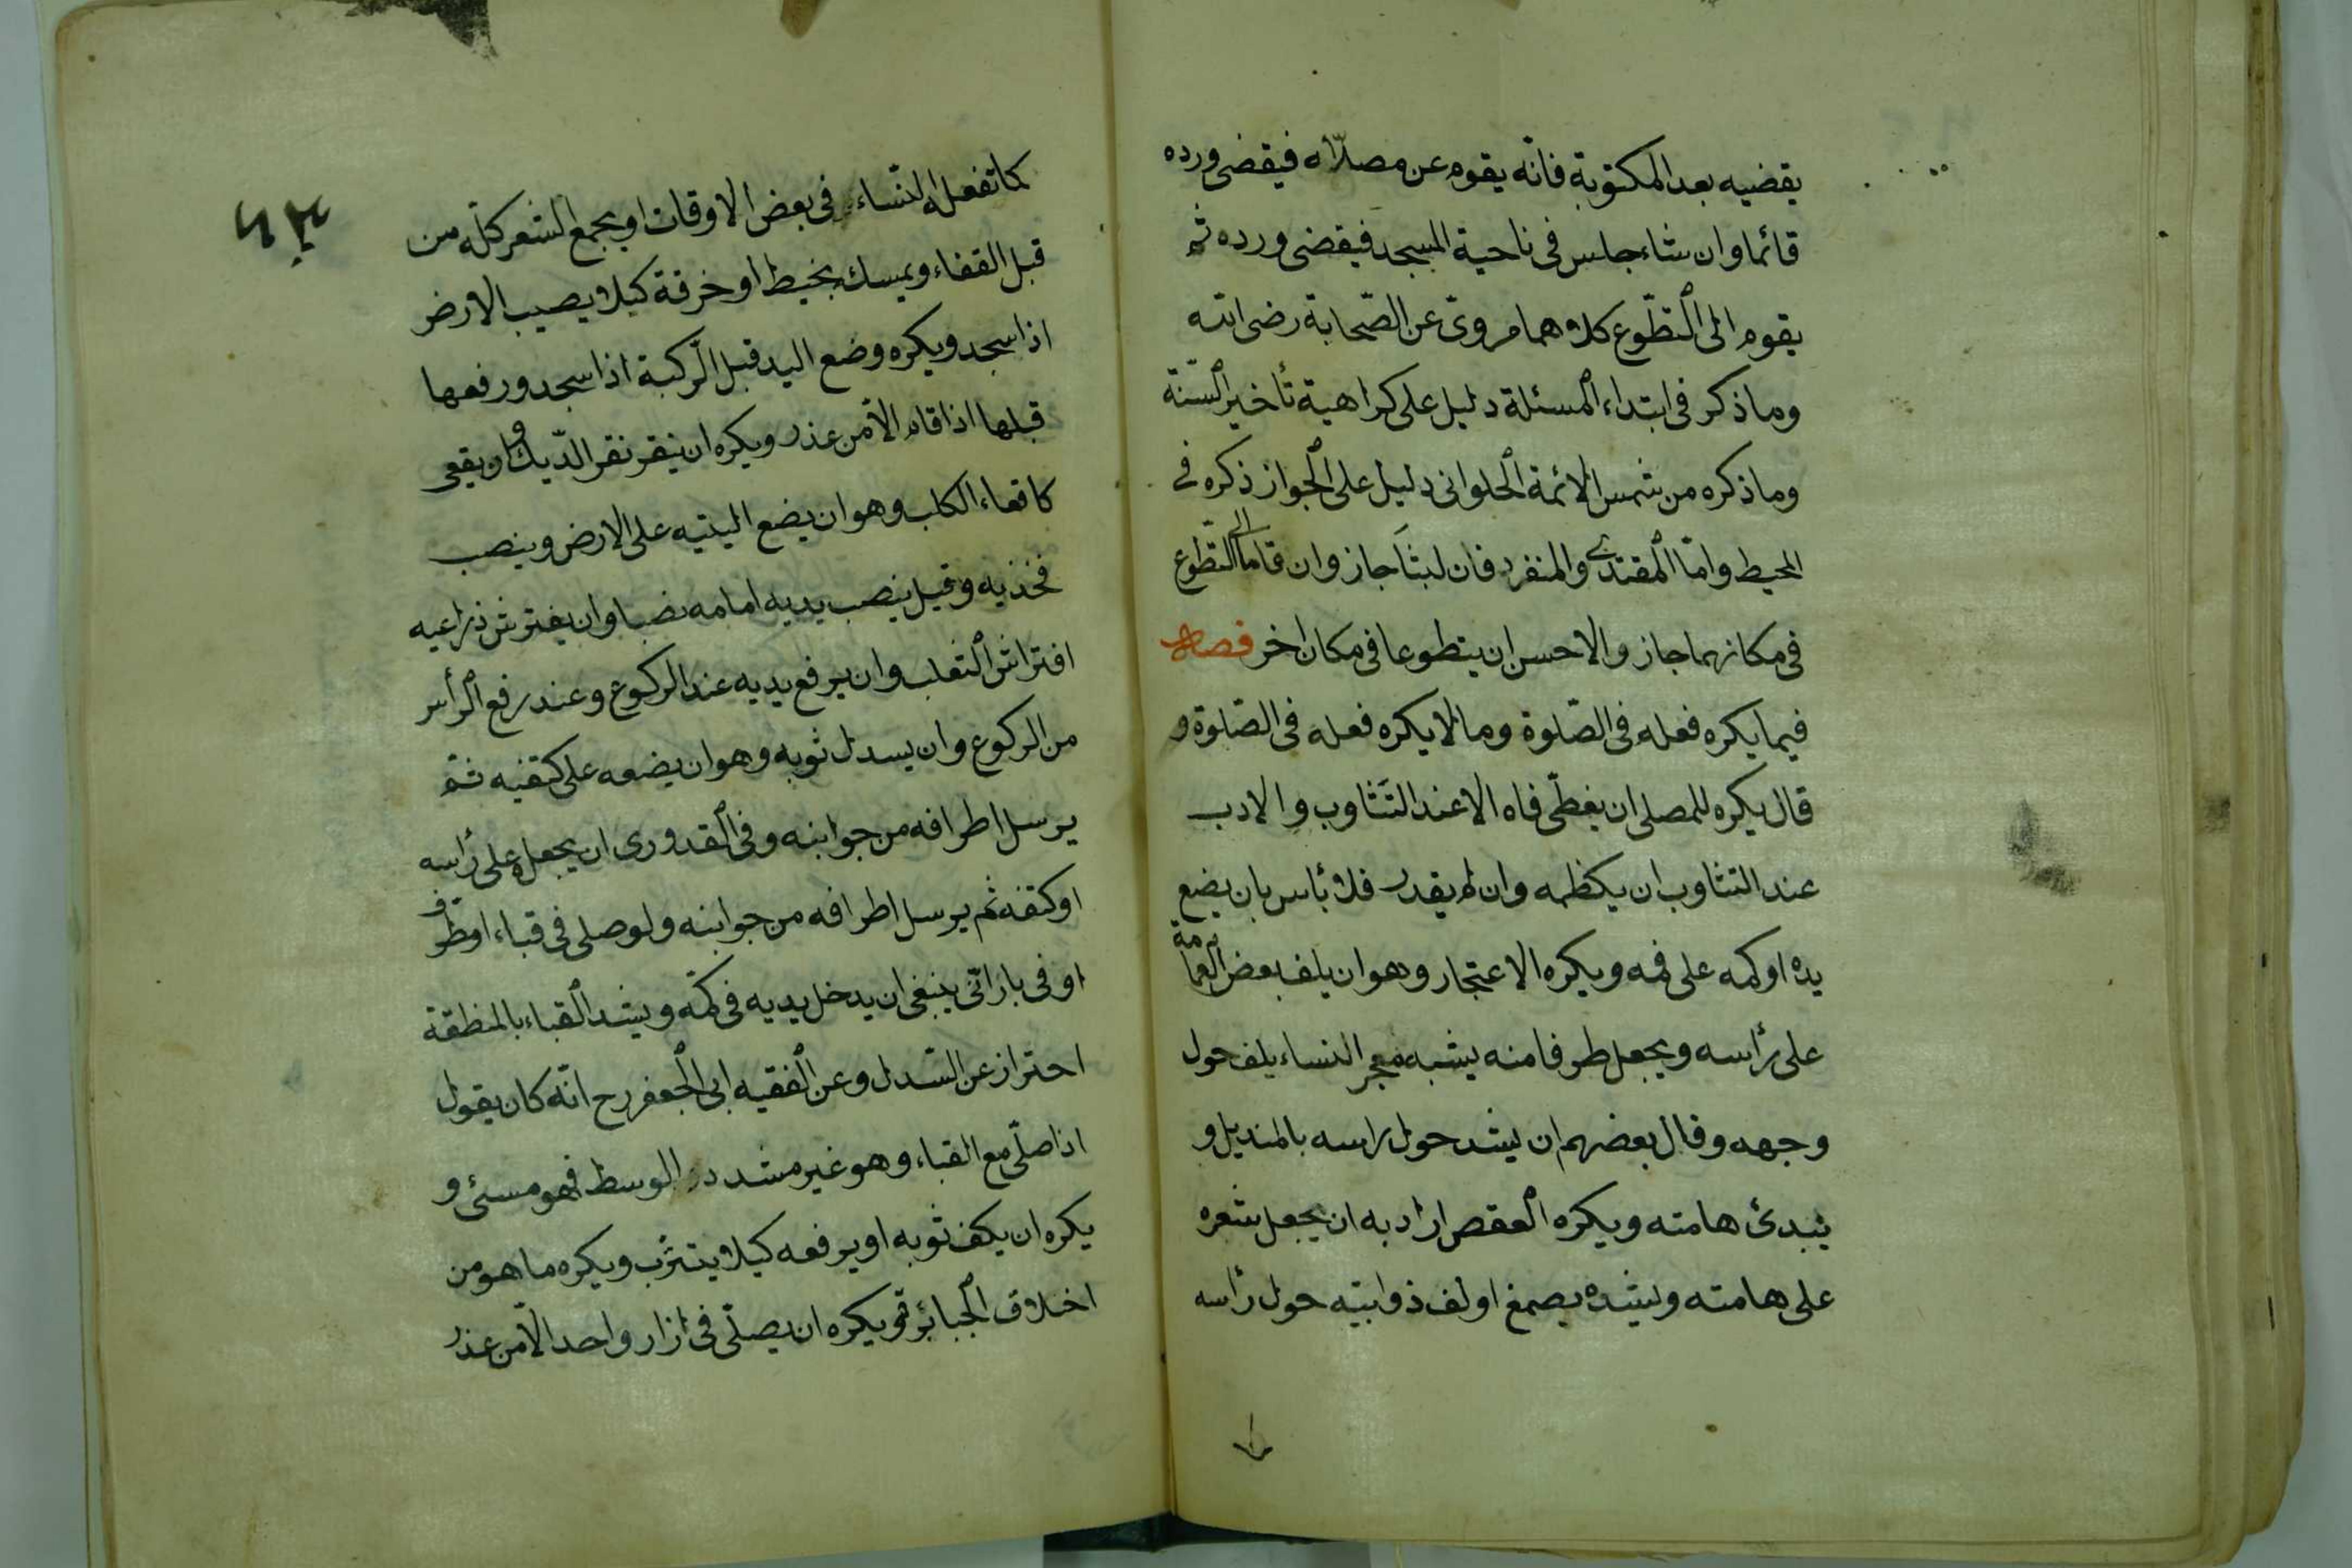 يقضيه بعد المكتوبة فانّه يقوم عن مصلّاه فيقضى ورده
قائما وان شاء جلس فى ناحية المسجد فيقضى ورده ثم
يقوم الى التطّوع كلاهما مروىّ عن الصّحابة رضى الله
وما ذكر فى ابتداء المسئلة دليل على كراهية تأخير السّنة
وما ذكره من شمس الائمة الحلوانى دليل على الجواز ذكره فى
المحيط وامّا المقتدى والمنفرد فان لبثا جاز وان قاما الى التطوع
فى مكانهما جاز والاحسن ان يتطوعا فى مكان اخر فصل
فيما يكره فعله فى الصّلوة وما لا يكره فعله فى الصّلوة و
قال يكره للمصلى ان يغطّى فاه الا عند التثاوب والادب
عند التثاوب ان يكظمه وان لم يقدر فلا بأس بان يضع
يده او كمه على فمه ويكره الاعتجار وهو ان يلف بعض العمامة
على رأسه ويجعل طرفا منه يشبه معجر النساء يلف حول
وجهه وقال بعضهم ان يشد حول راسه بالمنديل و
يبدئ هامته ويكره العقص اراد به ان يجعل شعره
على هامته ويشده بصمغ او لف ذوابيته حول رأسه
٦٣
كما تفعله النّساء فى بعض الاوقات او يجمع الشعر كلّه من
قبل القفاء ويمسك بخيط او خرقة كيلا يصيب الارض
اذا سجد ويكره وضع اليد قبل الرّكبة اذا سجد ورفعها
قبلها اذا قام الّا من عذر ويكره ان ينقر نقر الدّيك وان يقعى
كاقعاء الكلب وهو ان يضع اليتيه على الارض وينصب
فخذيه وقيل ينصب يديه امامه نصبا وان يفترش ذراعيه
افتراش الثعلب وان يرفع يديه عند الركوع وعند رفع الرأس
من الركوع وان يسدل ثوبه وهو ان يضعه على كتفيه ثمّ
يرسل اطرافه من جوانبه وفى القدورى ان يجعله على رأسه
او كتفه ثم يرسل اطرافه من جوانبه ولو صلى فى قباء او مطرف
او فى بارانّى ينبغى ان يدخل يديه فى كمّه ويشد القباء بالمنطقة
احتراز عن السّدل وعن الفقيه ابى الجعفر رح انّه كان يقول
اذا صلّى مع القباء وهو غير مشدد الوسط فهو مسئ و
يكره ان يكف ثوبه او يرفعه كيلا يتترّب ويكره ما هو من
اخلاق الجبائرة ويكره ان يصلّى فى ازار واحد الّا من عذر